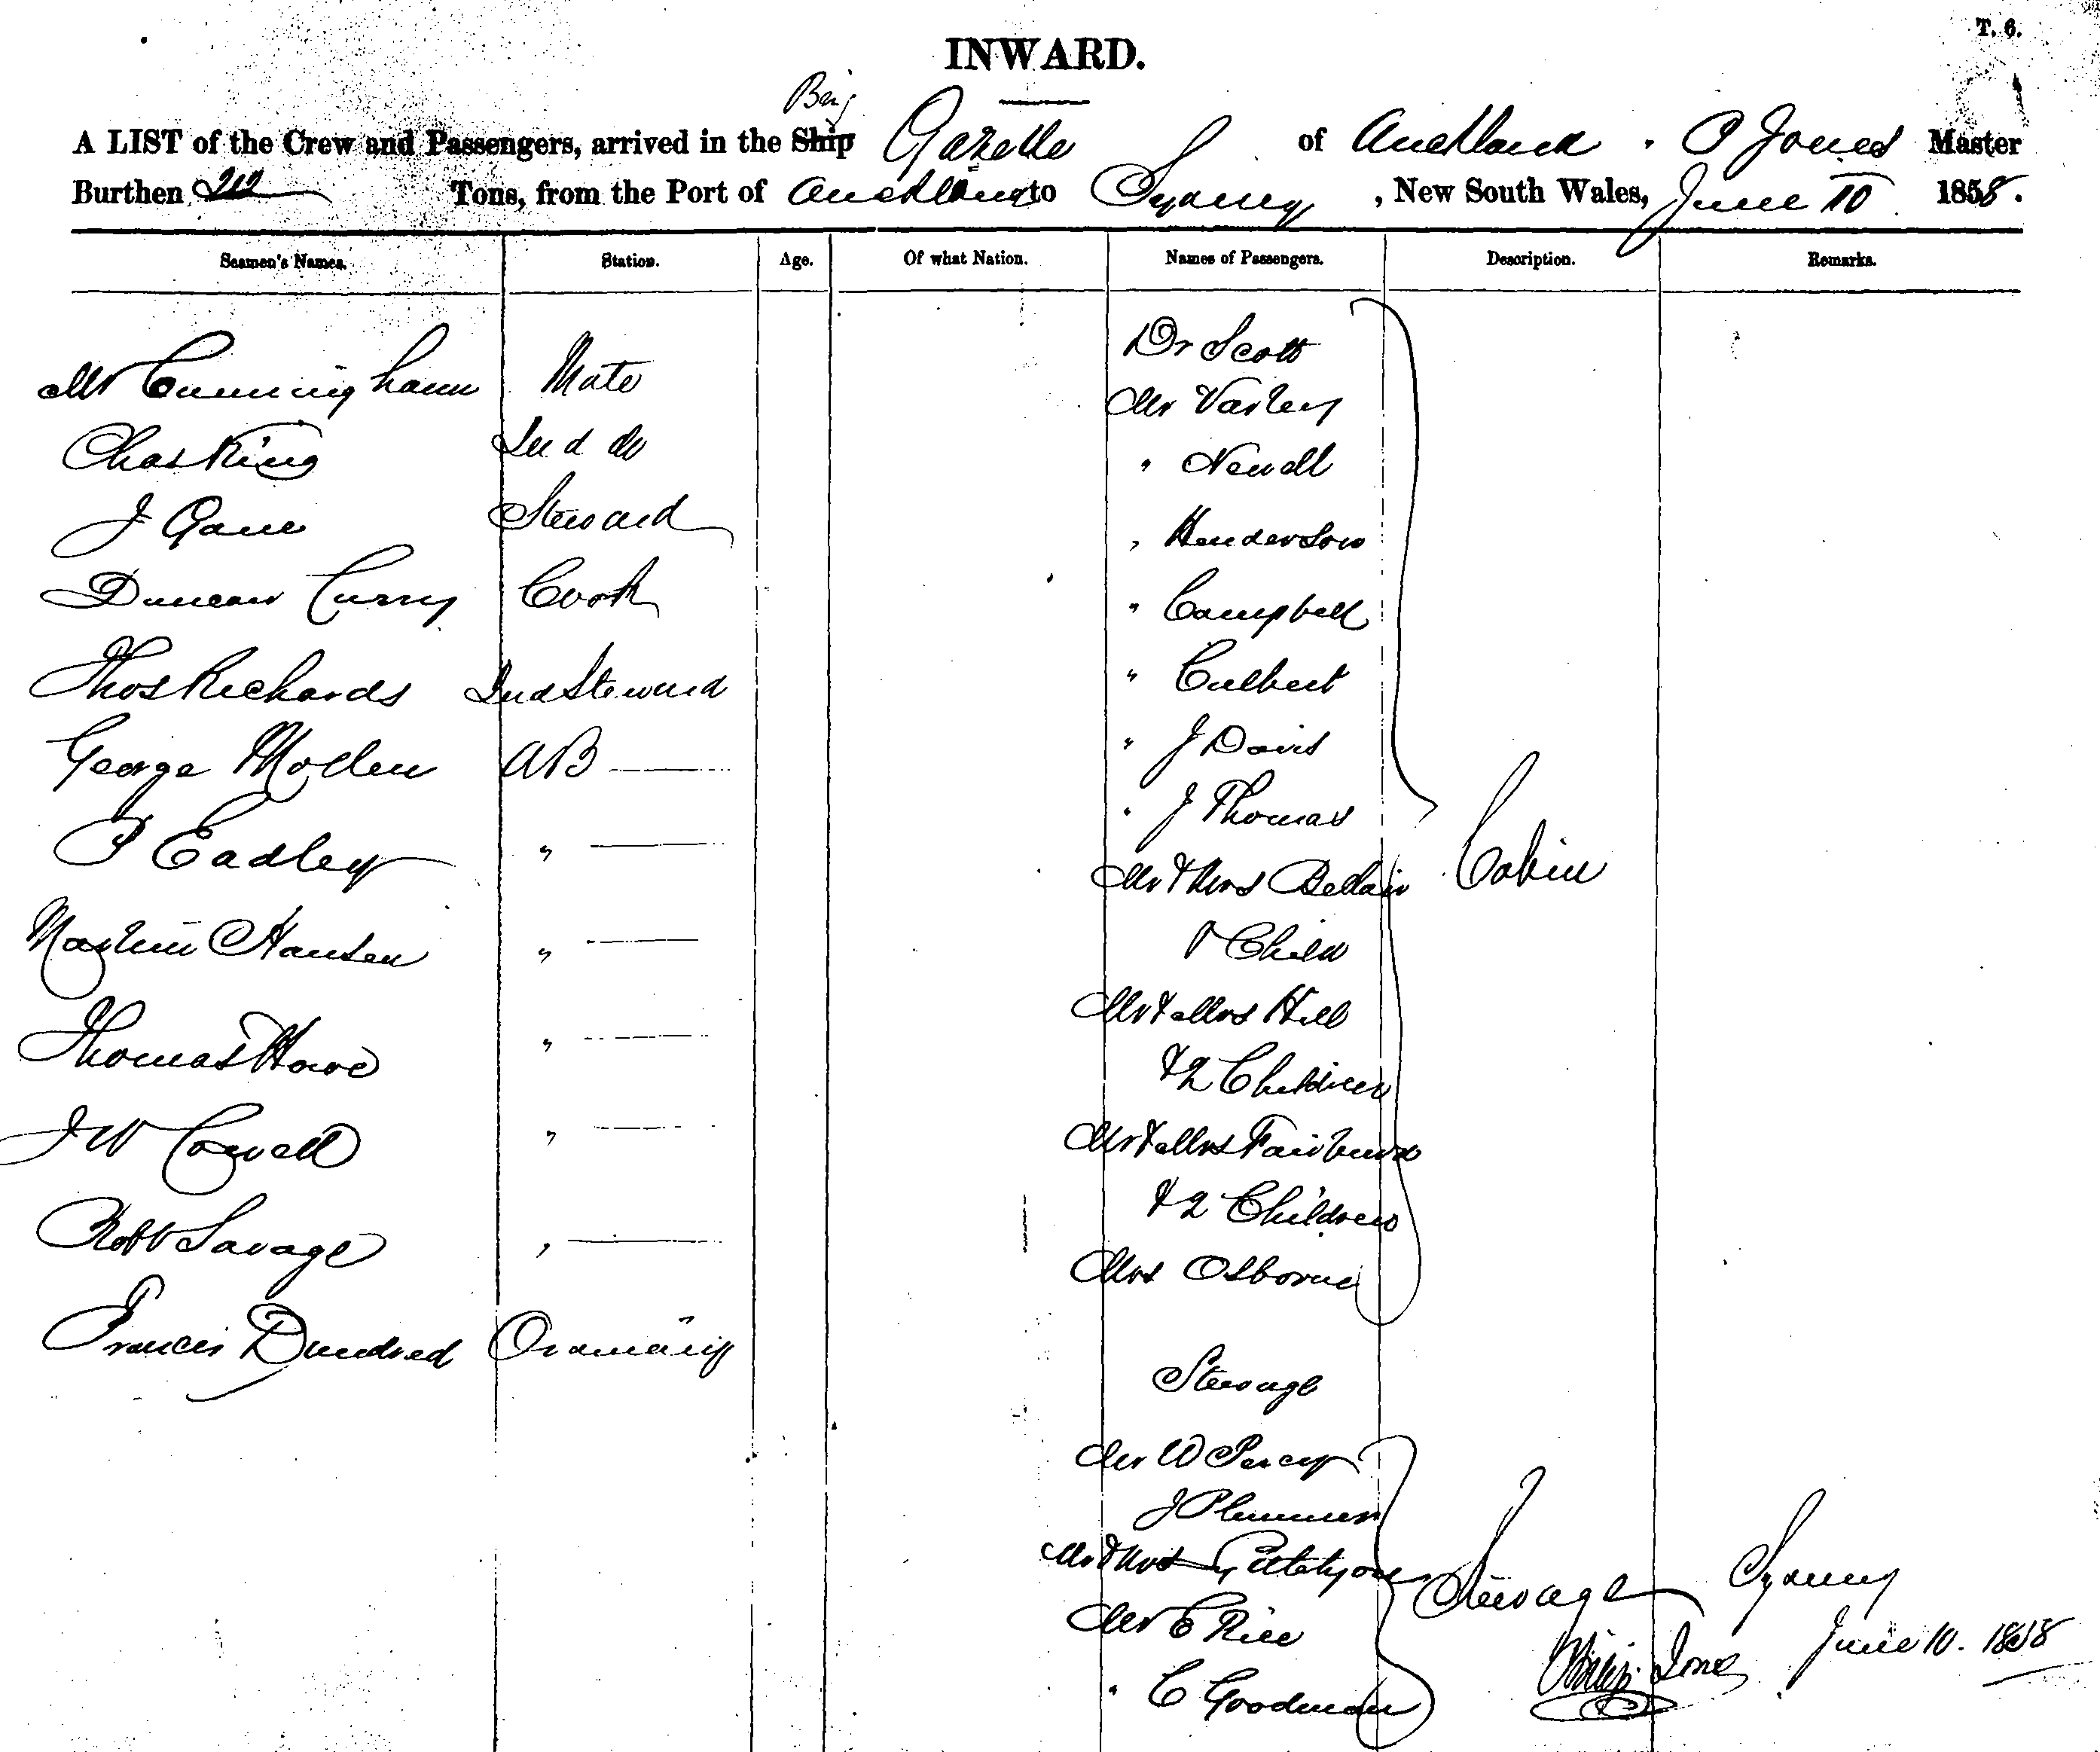 T. 6.
INWARD.
Brig
A LIST of the Crew and Passengers, arrived in the Ship Gazelle of Auckland . P Jones Master
Burthen 210 Tons, from the Port of Auckland to Sydney , New South Wales, June 10 1858.
Seamen's Names. Station. Age. Of what Nation. Names of Passengers. Description. Remarks.
Mr Cunningham Mate Dr Scott
Mr Varley
Chas King 2nd do " Newell
J Gane Steward " Henderson
Duncan Curry Cook " Campbell
Thos Richards 2nd Steward " Culbert
George Mollen AB " J Davis
" J Thomas
P Eadley " Mr & Mrs Bellair Cabin
Martin Hansen " & Child
Thomas Howe " Mr & Mrs Hill
& 2 Children
J W Cowell " Mr & Mrs Fairburn
Robt Savage " & 2 Children
Mrs Osborne
Francis Dundred
Steerage
Mr W Percy
J Plummer
Mr & Mrs Steerage Sydney
Mr E Rice Philip Jones June 10. 1858
" C Goodman